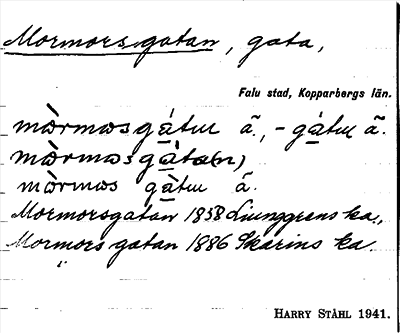 Mormorsgatan, gata,
Falu stad, Kopparbergs län.
mòrmos gátu ã., - gátu ã.
mòrmos gàta(n)
mòrmos gàtu ã.
Mormorsgatan 1858 Ljunggrens ka.,
Mormors gatan 1886 Skarins ka.
HARRY STÅHL 1941.